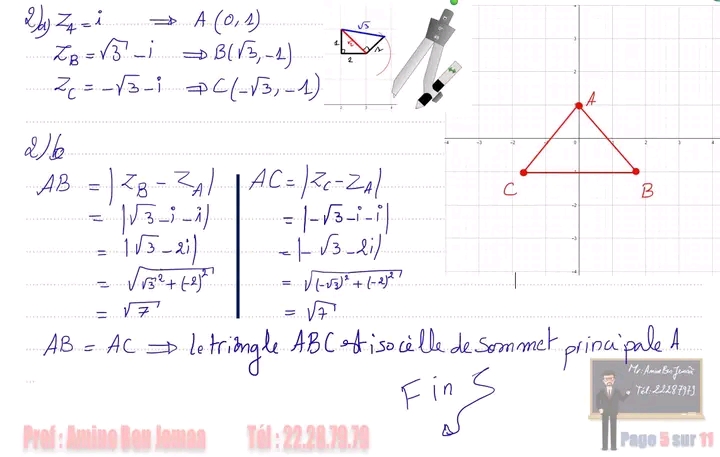 2)a) Z_A = i ⟹ A(0,1)
Z_B = √3 - i ⟹ B(√3,-1)
Z_C = -√3 - i ⟹ C(-√3,-1)
√3
1
2
A
C
B
2)b)
AB = |Z_B - Z_A|
= |√3 - i - i|
= |√3 - 2i|
= √(√3² + (-2)²)
= √7
AC = |Z_C - Z_A|
= |-√3 - i - i|
= |-√3 - 2i|
= √((-√3)² + (-2)²)
= √7
AB = AC ⟹ le triangle ABC est isocèlle de sommet principale A
Fin
Mr. Amine Ben Jemaa
Tél: 22287979
Prof : Amine Ben Jemaa Tél : 22.28.79.79
Page 5 sur 11